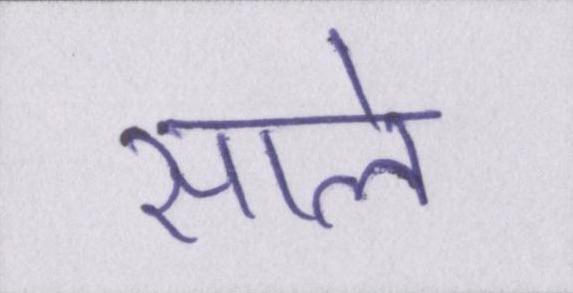 साले